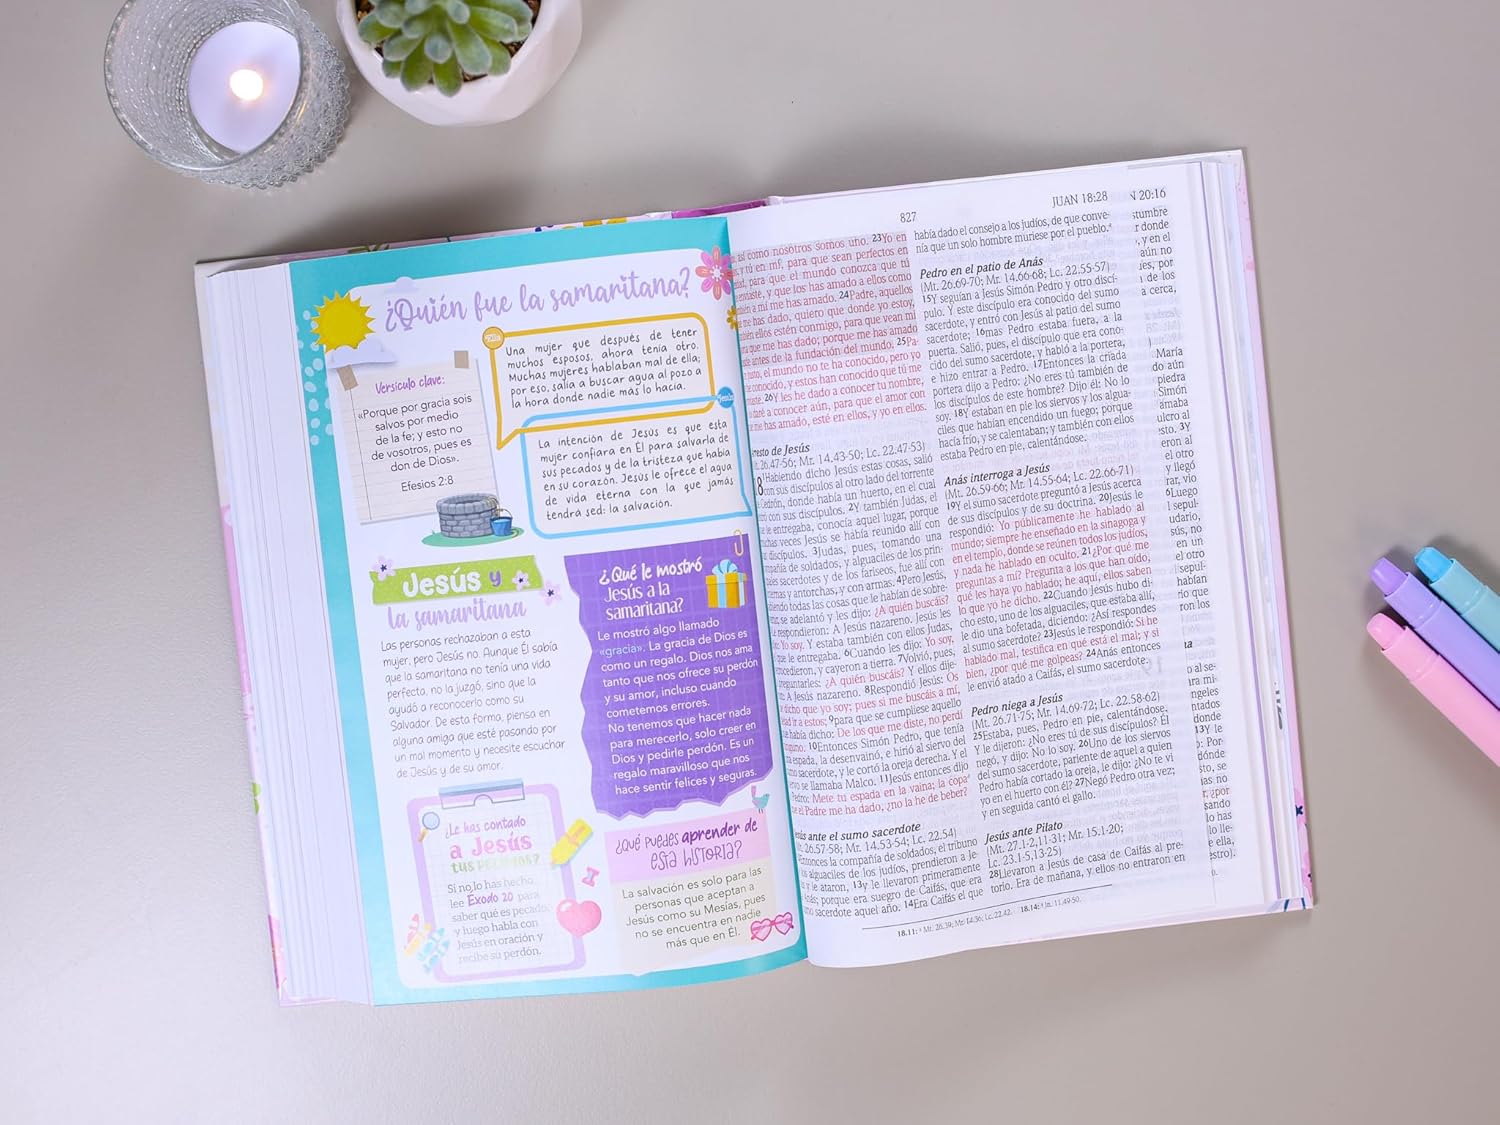 ¿Quién fue la samaritana?
Una mujer que después de tener
muchos esposos, ahora tenía otro.
Muchas mujeres hablaban mal de ella;
por eso, salía a buscar agua al pozo a
la hora donde nadie más lo hacía.
Jesús
La intención de Jesús es que esta
mujer confiara en Él para salvarla de
sus pecados y de la tristeza que había
en su corazón. Jesús le ofrece el agua
de vida eterna con la que jamás
tendrá sed: la salvación.
Versículo clave:
«Porque por gracia sois
salvos por medio
de la fe; y esto no
de vosotros, pues es
don de Dios».
Efesios 2:8
Jesús y
la samaritana
Las personas rechazaban a esta
mujer, pero Jesús no. Aunque Él sabía
que la samaritana no tenía una vida
perfecta, no la juzgó, sino que la
ayudó a reconocerlo como su
Salvador. De esta forma, piensa en
alguna amiga que esté pasando por
un mal momento y necesite escuchar
de Jesús y de su amor.
¿Qué le mostró
Jesús a la
samaritana?
Le mostró algo llamado
«gracia». La gracia de Dios es
como un regalo. Dios nos ama
tanto que nos ofrece su perdón
y su amor, incluso cuando
cometemos errores.
No tenemos que hacer nada
para merecerlo, solo creer en
Dios y pedirle perdón. Es un
regalo maravilloso que nos
hace sentir felices y seguras.
¿Le has contado
a Jesús
tus pecados?
Si no lo has hecho,
lee Éxodo 20 para
saber qué es pecado,
y luego habla con
Jesús en oración y
recibe su perdón.
¿Qué puedes aprender de
esta historia?
La salvación es solo para las
personas que aceptan a
Jesús como su Mesías, pues
no se encuentra en nadie
más que en Él.
827
JUAN 18:28
N 20:16
así como nosotros somos uno. 23Yo en
y tú en mí, para que sean perfectos en
para que el mundo conozca que tú
y que los has amado a ellos como
a mí me has amado. 24Padre, aquellos
me has dado, quiero que donde yo estoy,
ellos estén conmigo, para que vean mi
que me has dado; porque me has amado
antes de la fundación del mundo. 25Pa-
justo, el mundo no te ha conocido, pero yo
conocido, y estos han conocido que tú me
26Y les he dado a conocer tu nombre,
daré a conocer aún, para que el amor con
me has amado, esté en ellos, y yo en ellos.
de Jesús
26.47-56; Mr. 14.43-50; Lc. 22.47-53)
Habiendo dicho Jesús estas cosas, salió
con sus discípulos al otro lado del torrente
Cedrón, donde había un huerto, en el cual
con sus discípulos. 2Y también Judas, el
le entregaba, conocía aquel lugar, porque
veces Jesús se había reunido allí con
discípulos. 3Judas, pues, tomando una
compañía de soldados, y alguaciles de los prin-
sacerdotes y de los fariseos, fue allí con
y antorchas, y con armas. 4Pero Jesús,
sabiendo todas las cosas que le habían de sobre-
se adelantó y les dijo: ¿A quién buscáis?
respondieron: A Jesús nazareno. Jesús les
Yo soy. Y estaba también con ellos Judas,
que le entregaba. 6Cuando les dijo: Yo soy,
retrocedieron, y cayeron a tierra. 7Volvió, pues,
a preguntarles: ¿A quién buscáis? Y ellos dije-
A Jesús nazareno. 8Respondió Jesús: Os
he dicho que yo soy; pues si me buscáis a mí,
ir a estos; 9para que se cumpliese aquello
que había dicho: De los que me diste, no perdí
ninguno. 10Entonces Simón Pedro, que tenía
espada, la desenvainó, e hirió al siervo del
sacerdote, y le cortó la oreja derecha. Y el
siervo se llamaba Malco. 11Jesús entonces dijo
Pedro: Mete tu espada en la vaina; la copa
que el Padre me ha dado, ¿no la he de beber?
Jesús ante el sumo sacerdote
26.57-58; Mr. 14.53-54; Lc. 22.54)
Entonces la compañía de soldados, el tribuno
alguaciles de los judíos, prendieron a Je-
y le ataron, 13y le llevaron primeramente
Anás; porque era suegro de Caifás, que era
sumo sacerdote aquel año. 14Era Caifás el que
había dado el consejo a los judíos, de que conve-
nía que un solo hombre muriese por el pueblo.
Pedro en el patio de Anás
(Mt. 26.69-70; Mr. 14.66-68; Lc. 22.55-57)
15Y seguían a Jesús Simón Pedro y otro discí-
pulo. Y este discípulo era conocido del sumo
sacerdote, y entró con Jesús al patio del sumo
sacerdote; 16mas Pedro estaba fuera, a la
puerta. Salió, pues, el discípulo que era cono-
cido del sumo sacerdote, y habló a la portera,
e hizo entrar a Pedro. 17Entonces la criada
portera dijo a Pedro: ¿No eres tú también de
los discípulos de este hombre? Dijo él: No lo
soy. 18Y estaban en pie los siervos y los algua-
ciles que habían encendido un fuego; porque
hacía frío, y se calentaban; y también con ellos
estaba Pedro en pie, calentándose.
Anás interroga a Jesús
(Mt. 26.59-66; Mr. 14.55-64; Lc. 22.66-71)
19Y el sumo sacerdote preguntó a Jesús acerca
de sus discípulos y de su doctrina. 20Jesús le
respondió: Yo públicamente he hablado al
mundo; siempre he enseñado en la sinagoga y
en el templo, donde se reúnen todos los judíos,
y nada he hablado en oculto. 21¿Por qué me
preguntas a mí? Pregunta a los que han oído,
qué les haya yo hablado; he aquí, ellos saben
lo que yo he dicho. 22Cuando Jesús hubo di-
cho esto, uno de los alguaciles, que estaba allí,
le dio una bofetada, diciendo: ¿Así respondes
al sumo sacerdote? 23Jesús le respondió: Si he
hablado mal, testifica en qué está el mal; y si
bien, ¿por qué me golpeas? 24Anás entonces
le envió atado a Caifás, el sumo sacerdote.
Pedro niega a Jesús
(Mt. 26.71-75; Mr. 14.69-72; Lc. 22.58-62)
25Estaba, pues, Pedro en pie, calentándose.
Y le dijeron: ¿No eres tú de sus discípulos? Él
negó, y dijo: No lo soy. 26Uno de los siervos
del sumo sacerdote, pariente de aquel a quien
Pedro había cortado la oreja, le dijo: ¿No te vi
yo en el huerto con él? 27Negó Pedro otra vez;
y en seguida cantó el gallo.
Jesús ante Pilato
(Mt. 27.1-2,11-31; Mr. 15.1-20;
Lc. 23.1-5,13-25)
28Llevaron a Jesús de casa de Caifás al pre-
torio. Era de mañana, y ellos no entraron en
18.11: Mt. 26.39; Mr. 14.36; Lc. 22.42. 18.14: Jn. 11.49-50.